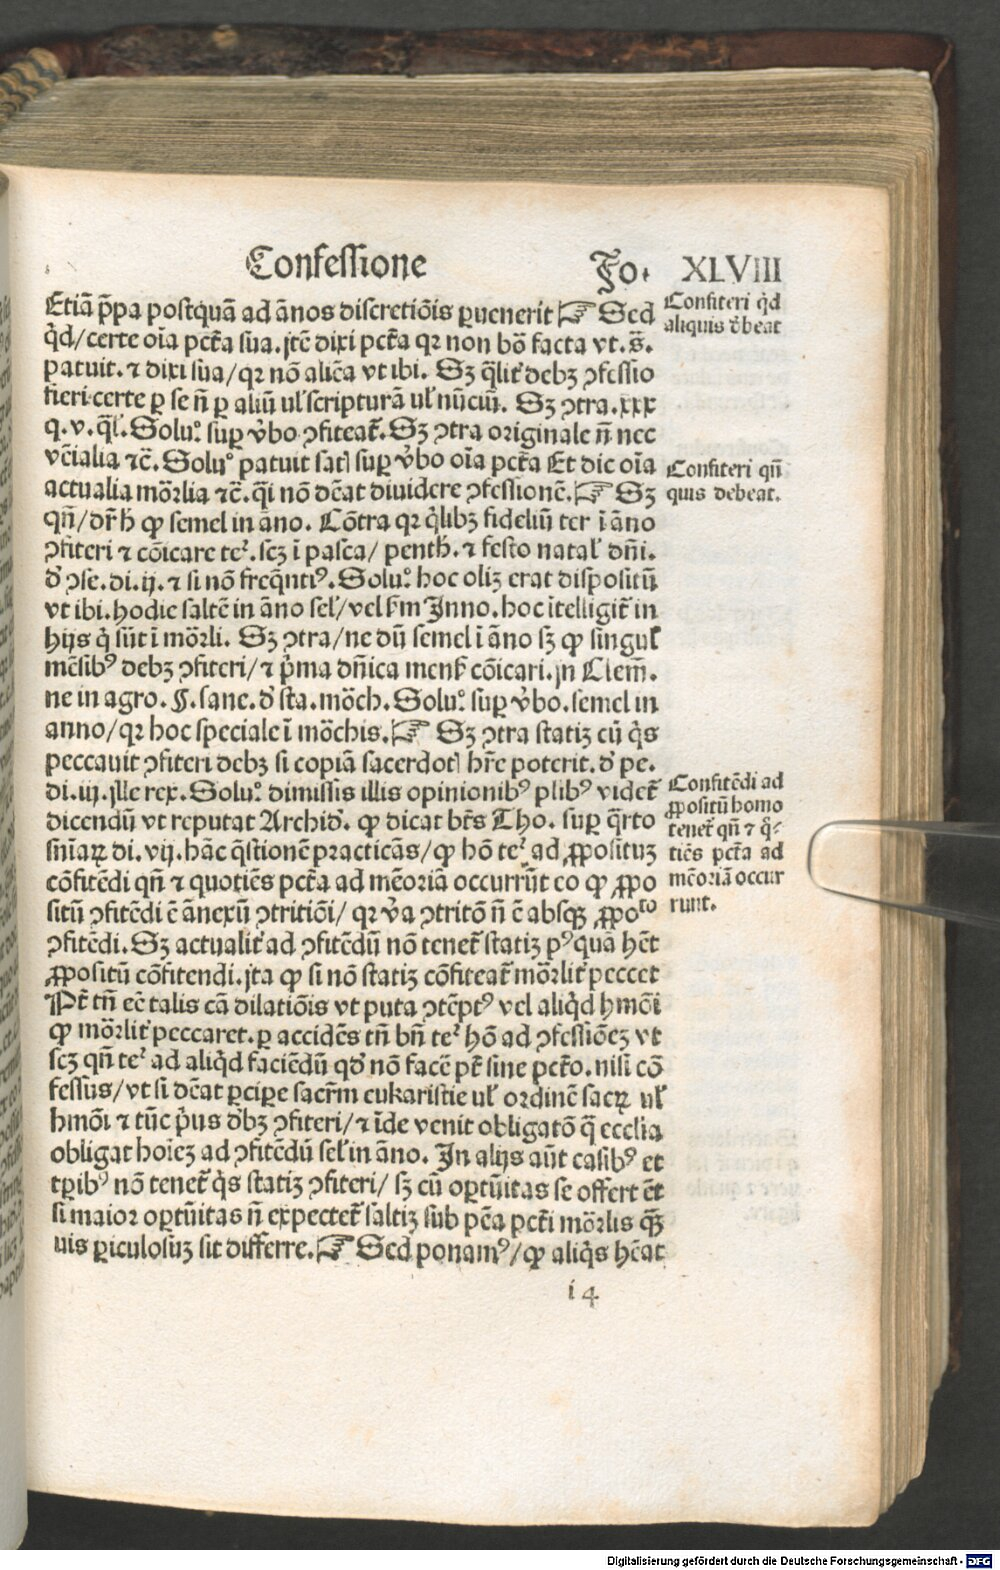 Confessione Fo. XLVIII
Etiā p̄pa postquā ad ānos discretiōis ꝑuenerit ☞ Sed
q̇d/certe oīa pctā sua. jtē dixi pctā qꝛ non bō facta vt. s̄.
patuit. ⁊ dixi sua/qꝛ nō aliēa vt ibi. Sꝫ q̄lit̄ debꝫ ꝯfessio
fieri certe ꝑ se n̄ ꝑ aliū ul̓ scripturā ul̓ nūciū. Sꝫ ꝯtra. xxx
q. v. q̄l̓. Soluº suꝑ v̓bo ꝯfiteat̄. Sꝫ ꝯtra originale n̄ nec
vēialia ⁊c̄. Soluº patuit sat suꝑ v̓bo oīa pctā Et dic oīa
actualia mōrlia ⁊c̄. q̄i nō dēat diuidere ꝯfessionē. ☞ Sꝫ
qn̄/dr̄ h̓ ꝙ semel in āno. Cōtra qꝛ q̇libꝫ fideliū ter ī āno
ꝯfiteri ⁊ cōicare teᷣ. scꝫ ī pasca/ penth̓. ⁊ festo natal̓ dn̄i.
d̓ ꝯse. di. ij. ⁊ si nō freq̄ntiꝰ. Soluº hoc oliꝫ erat dispositū
vt ibi. hodie saltē in āno sel̓/vel km̄ Inno. hoc ītelligit̄ in
hijs q̇ sūt ī mōrli. Sꝫ ꝯtra/ne dū semel ī āno sꝫ ꝙ singul̓
mēsibꝰ debꝫ ꝯfiteri/ ⁊ p̄ma dn̄ica menẜ cōicari. jn Clem̄.
ne in agro. §. sane. d̓ sta. mōch. Soluº suꝑ v̓bo. semel in
anno/qꝛ hoc speciale ī mōchis. ☞ Sꝫ ꝯtra statiꝫ cū q̇s
peccauit ꝯfiteri debꝫ si copiā sacerdot hr̄e poterit. d̓ pe.
di. iij. jlle rex. Soluº dimissis illis opinionibꝰ plibꝰ videt̄
dicendū vt reputat Archid̓. ꝙ dicat bt̄s Tho. suꝑ q̄rto
sn̄iaꝝ di. vij. hāc q̄stionē practicās/ꝙ hō teᷣ ad ꝓpositūꝫ
cōfitēdi qn̄ ⁊ quotiēs pctā ad mēoriā occurrūt eo ꝙ ꝓpo
sitū ꝯfitēdi ē ānexū ꝯtritiōi/ qꝛ v̓a ꝯtritō n̄ ē absqꝫ ꝓpoᵗᵒ
ꝯfitēdi. Sꝫ actualit̄ ad ꝯfitēdū nō tenet̄ statiꝫ pꝰquā hēt
ꝓpositū cōfitendi. jta ꝙ si nō statiꝫ cōfiteat̄ mōrlit̄ peccet
Pt̄ tn̄ eē talis cā dilatiōis vt puta ꝯtēptꝰ vel aliq̇d hmōi
ꝙ mōrlit̄ peccaret. ꝑ accidēs tn̄ bn̄ teᷣ hō ad ꝯfessiōeꝫ vt
scꝫ qn̄ teᷣ ad aliq̇d faciēdū qd̓ nō facē pt̄ sine pctō. nisi cō
fessus/vt si dēat ꝑciꝑe sacr̄m eukaristie ul̓ ordinē sacꝝ ul̓
hmōi ⁊ tūc p̄us d̓bꝫ ꝯfiteri/⁊ īde venit obligatō q̄ ecclīa
obligat hoīeꝫ ad ꝯfitēdū sel̓ in āno. In alijs aūt casibꝰ et
tꝑibꝰ nō tenet̄ q̇s statiꝫ ꝯfiteri/ sꝫ cū oꝑtūitas se offert ēt
si maior oꝑtūitas n̄ expectet̄ saltiꝫ sub pēa pctī mōrlis qꝫ̄
uis ꝑiculosuꝫ sit differre. ☞ Sed ponamꝰ/ꝙ aliq̇s hēat
i 4
Confiteri q̇d
aliquis d̓beat
Confiteri qn̄
quis debeat.
Confitēdi ad
ꝓpositū homo
tenet̄ qn̄ ⁊ q̇
tiēs pctā ad
mēoriā occur
runt.
Digitalisierung gefördert durch die Deutsche Forschungsgemeinschaft - DFG